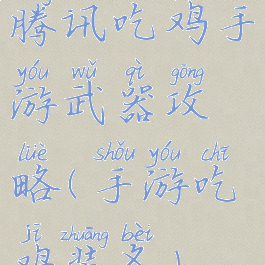 腾讯吃鸡手
yóu wǔ qì gōng
游武器攻
lüè shǒu yóu chī
略(手游吃
jī zhuāng bèi
鸡装备)